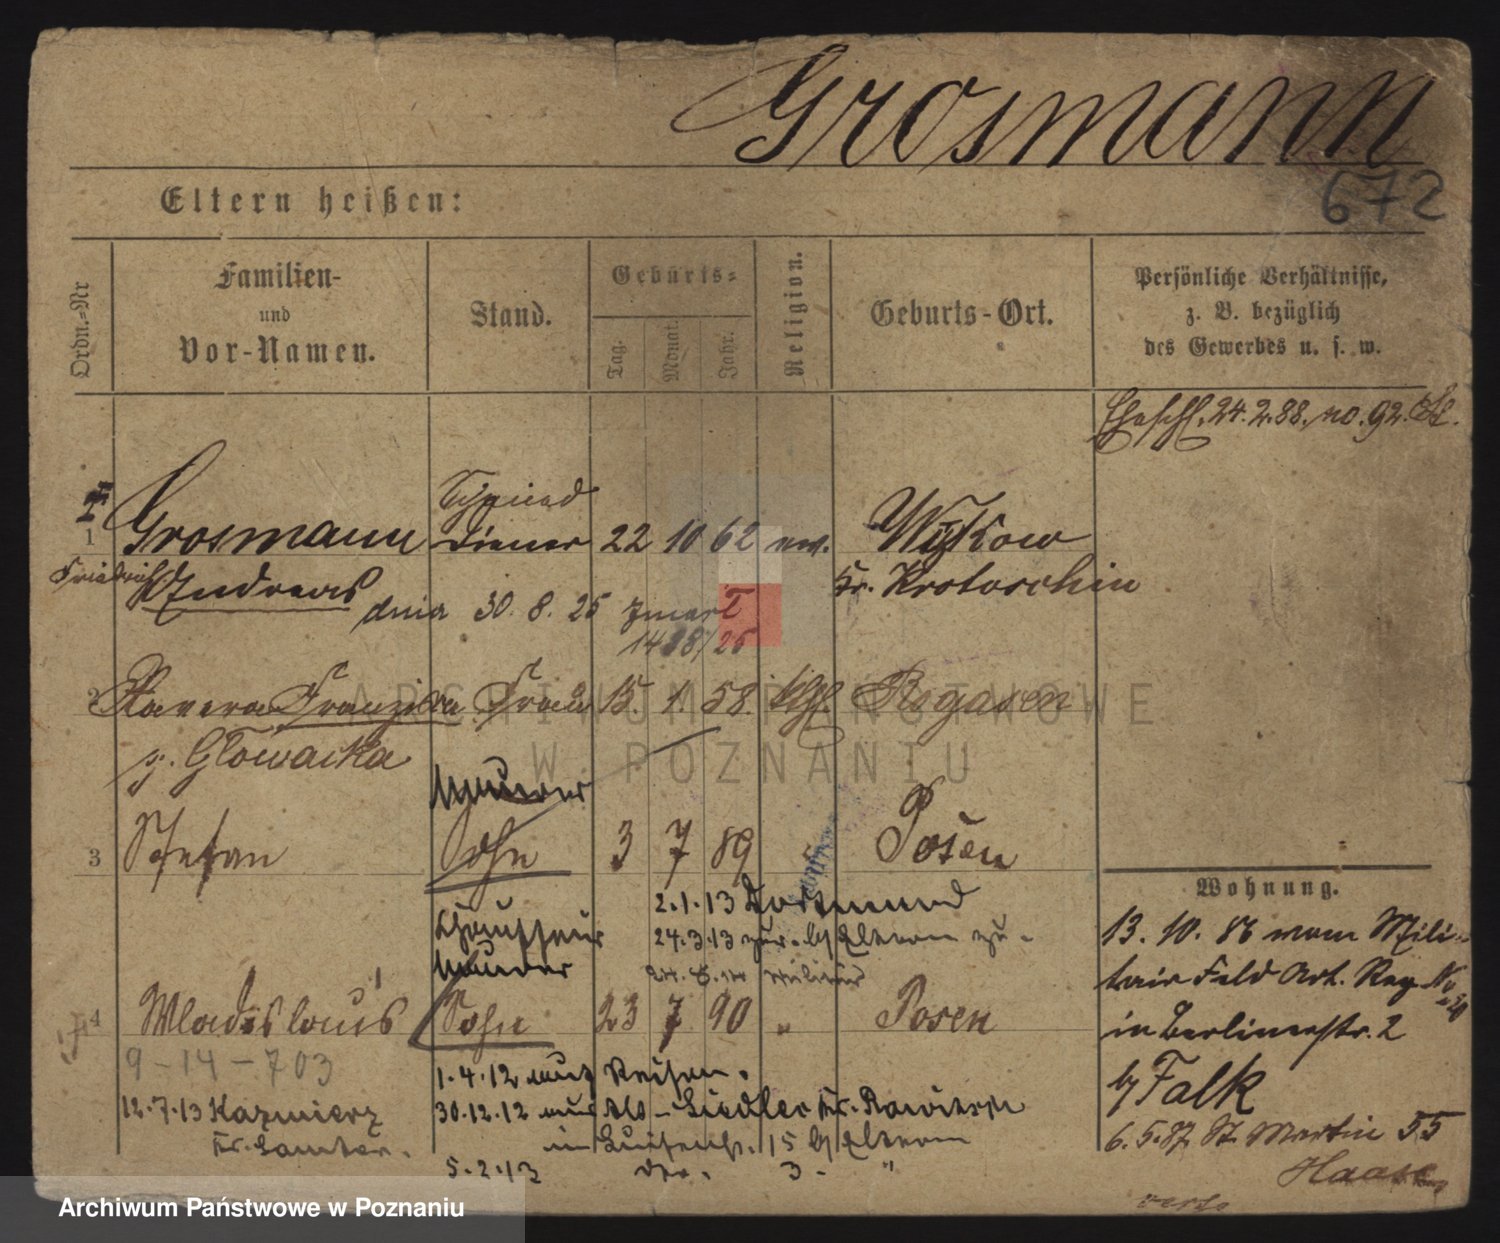 Grosmann
672
Eltern heißen:
Ordn.=Nr
Familien-
und
Vor-Namen.
Stand.
Geburts=
Tag.
Monat.
Jahr.
Religion.
Geburts-Ort.
Persönliche Verhältnisse,
z. B. bezüglich
des Gewerbes u. s. w.
24.2.88. no. 92.
Schmied
1 Grosmann Diener 22 10 62 ew. Wyskow
Friedrich Andreas Kr. Krotoschin
dnia 30. 8. 25 zmarł
1428/25
2 Xavera Franziska Frau 15. 1. 58. kath. Rogasen
g. Głowacka
Maurer
3 Stefan Sohn 3 7 89 Posen
2.1.13 Dortmund
Chauffeur 24.3.13 zur. b/ Eltern zu.
Maurer Militär
4 Wladislaus Sohn 23 7 90 " Posen
9-14-703
1.4.12 auf Reisen.
12.7.13 Kazmierz 30.12.12 aus Alt-Siedler Kr. Rawitsch
Kr. Samter. in 15 b/ Eltern
5.2.13 3. "
Wohnung.
13. 10. 86 vom Mili-
tair Feld Art. Reg. No 20
in Berlinerstr. 2
b/ Falk
6.5.87. St. Martin 55
Haase
verso
ARCHIWUM PAŃSTWOWE
W POZNANIU
Archiwum Państwowe w Poznaniu